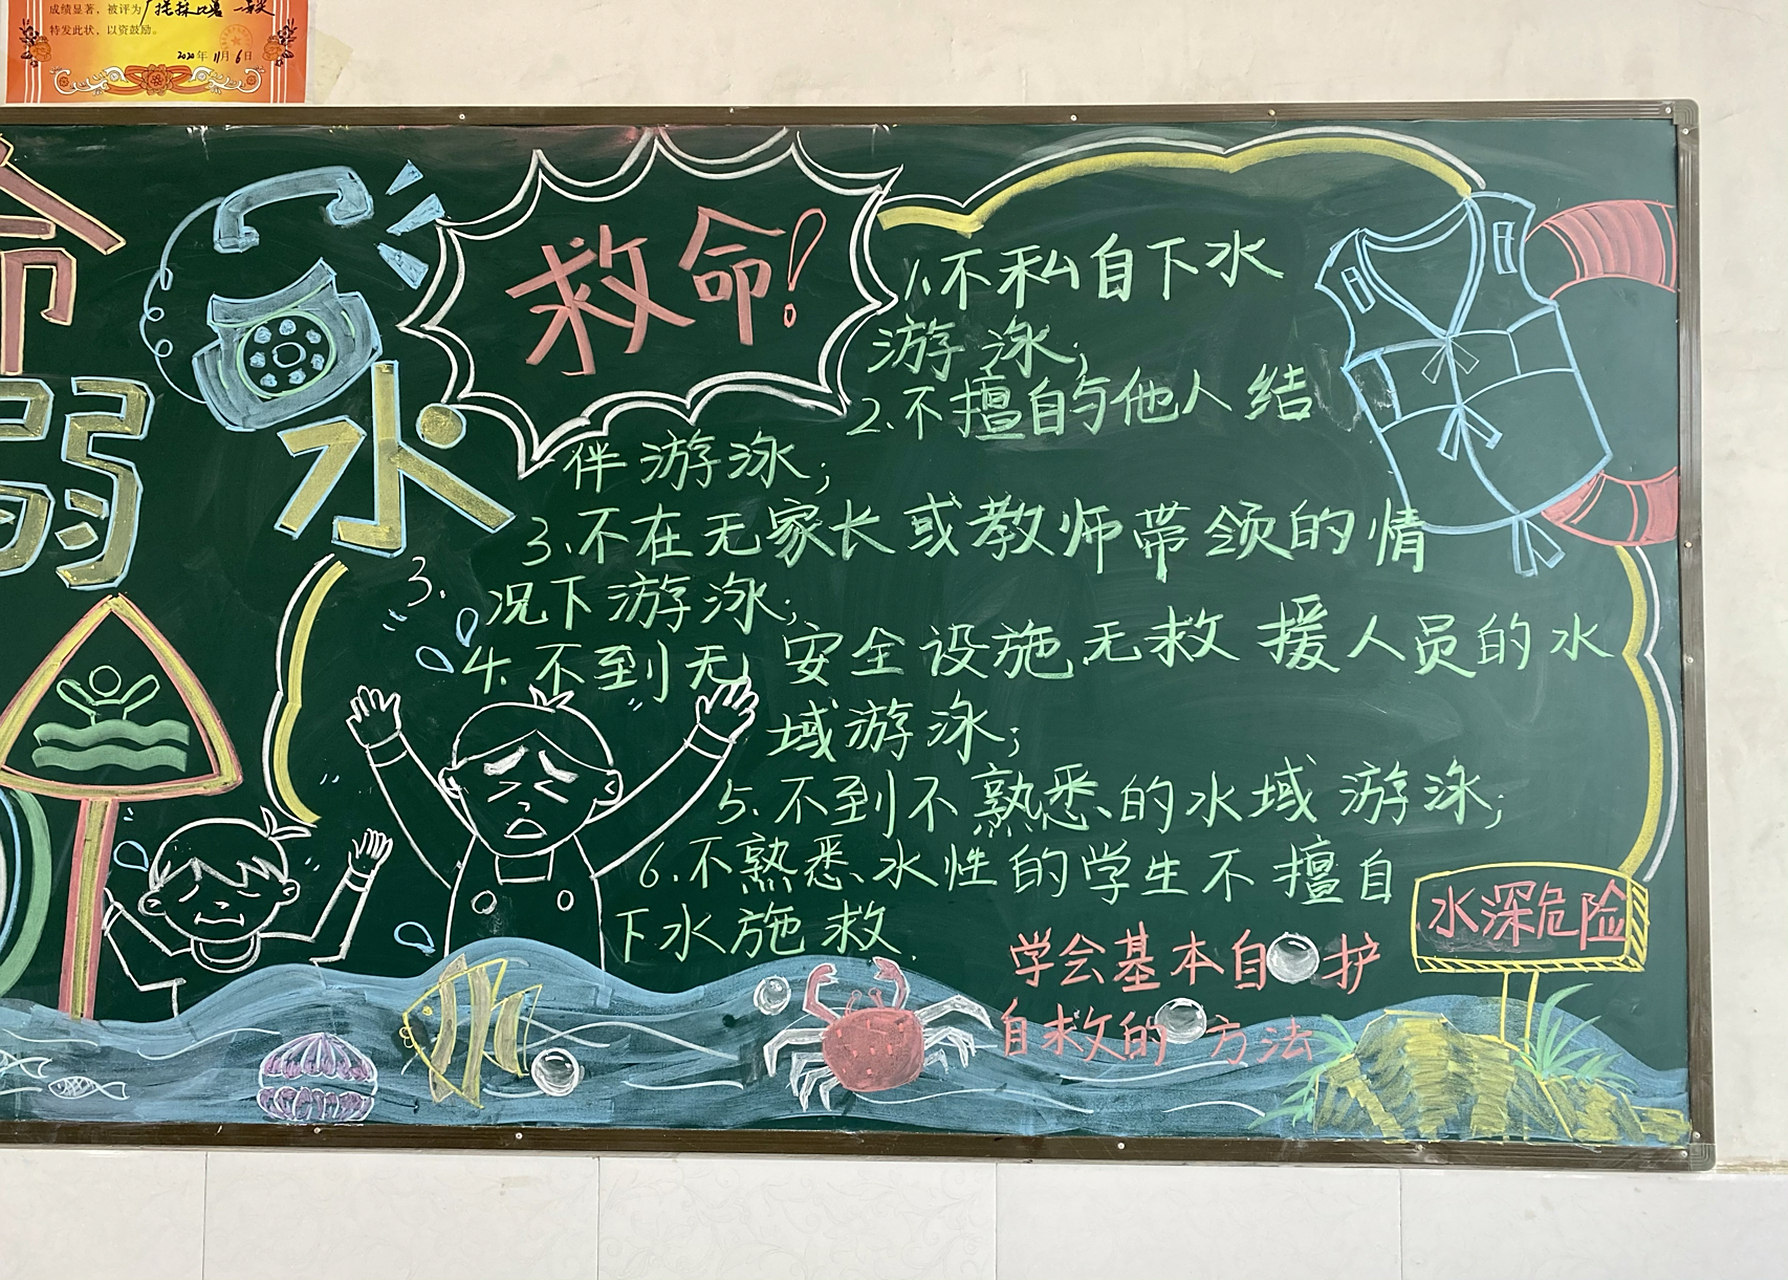 成绩显著，被评为
特发此状，以资鼓励。
2020年11月6日
命
溺水
救命！
1.不私自下水
游泳；
2.不擅自与他人结
伴游泳；
3.不在无家长或教师带领的情
况下游泳；
3.
4.不到无安全设施无救援人员的水
域游泳；
5.不到不熟悉的水域游泳；
6.不熟悉水性的学生不擅自
下水施救.
学会基本自护
自救的方法
水深危险